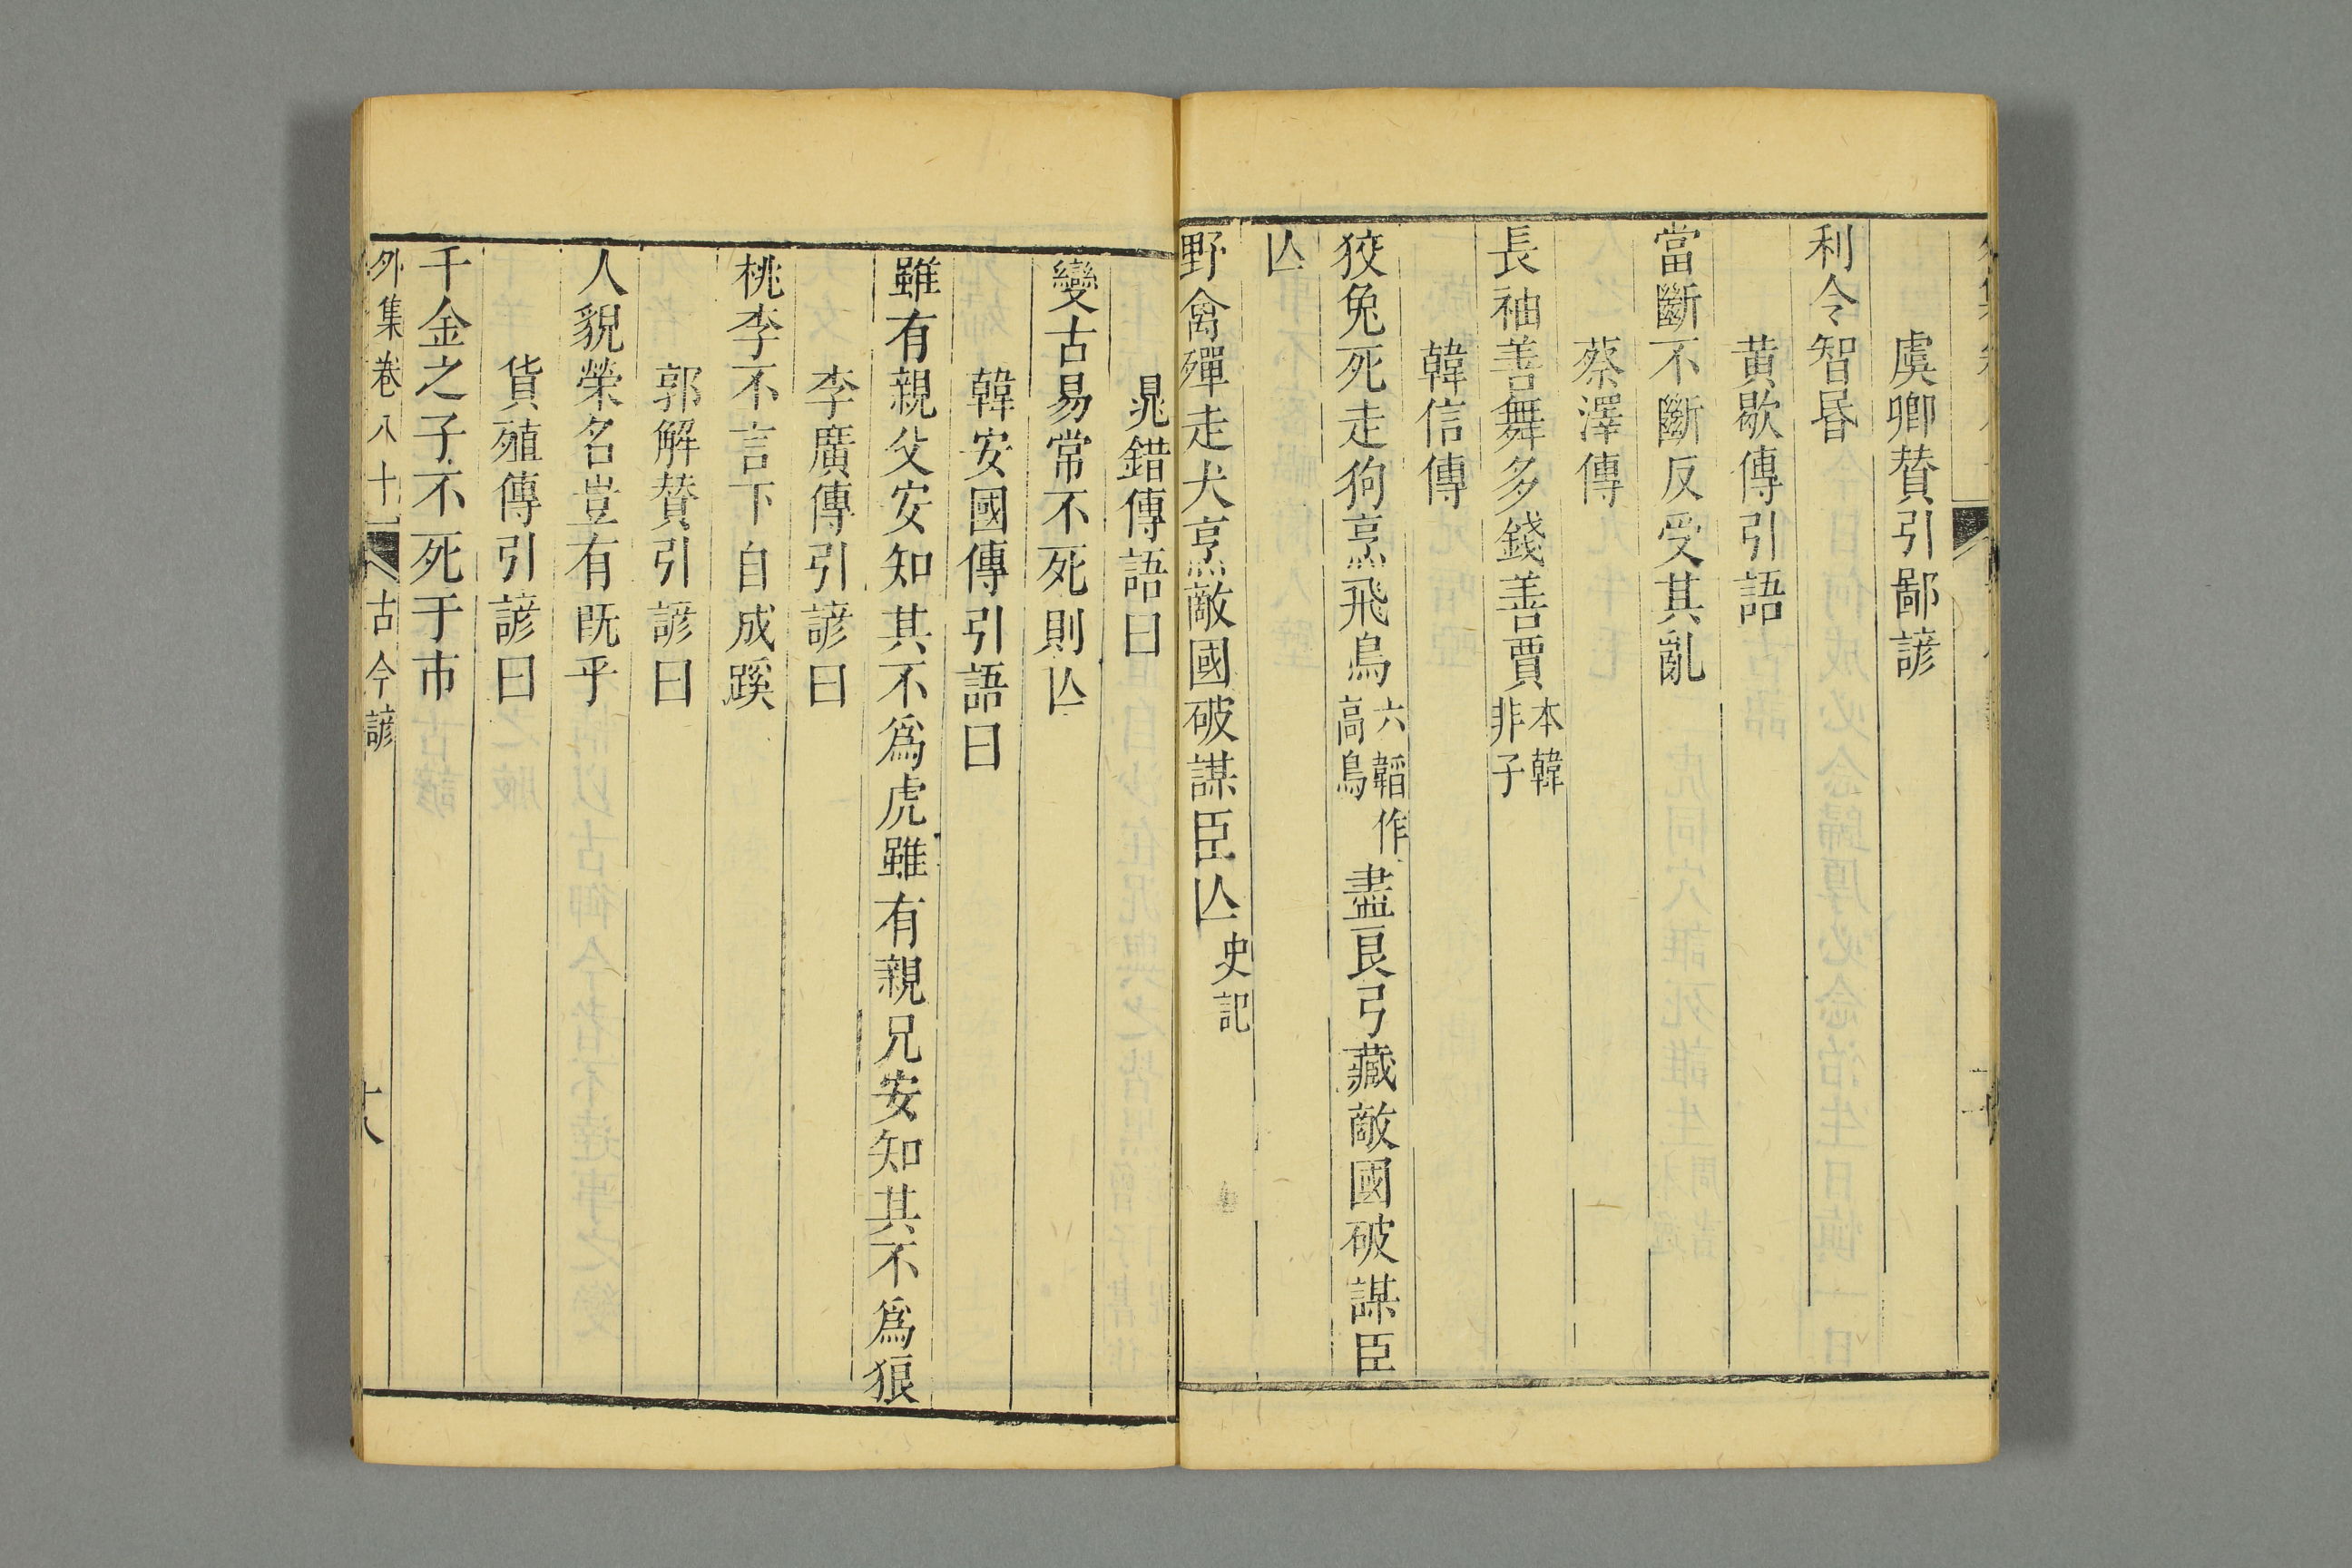 虞卿賛引鄙諺
利令智昬
黃歇傳引語
當斷不斷反受其亂
蔡澤傳
長袖善舞多錢善賈本韓非子
韓信傳
狡兔死走狗烹飛鳥六韜作高鳥盡良弓藏敵國破謀臣
亾
野禽殫走犬烹敵國破謀臣亾史記
鼂錯傳語曰
變古易常不死則亾
韓安國傳引語曰
雖有親父安知其不爲虎雖有親兄安知其不爲狼
李廣傳引諺曰
桃李不言下自成蹊
郭解賛引諺曰
人貌榮名豈有旣乎
貨殖傳引諺曰
千金之子不死于市
外集卷八十一 古今諺 十八